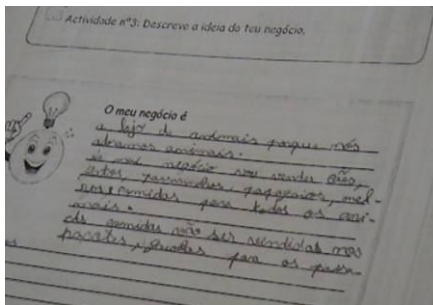 Actividade nº3: Descreve a ideia do teu negócio.
O meu negócio é
a loja de animais porque nós
adoramos animais.
o meu negócio vou vender cães,
gatos, passarinhos, papagaios,
e comidas para todos os ani-
mais.
As comidas vão ser vendidas nos
pacotes, para os